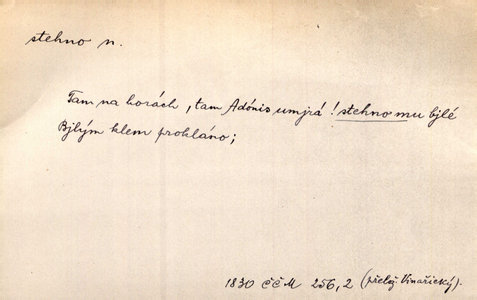 stehno n.
Tam na horách, tam Adónis umjrá! stehno mu bjlé
Bjlým klem prokláno;
1830 ČČM 256,2 (přelož. Vinařický).